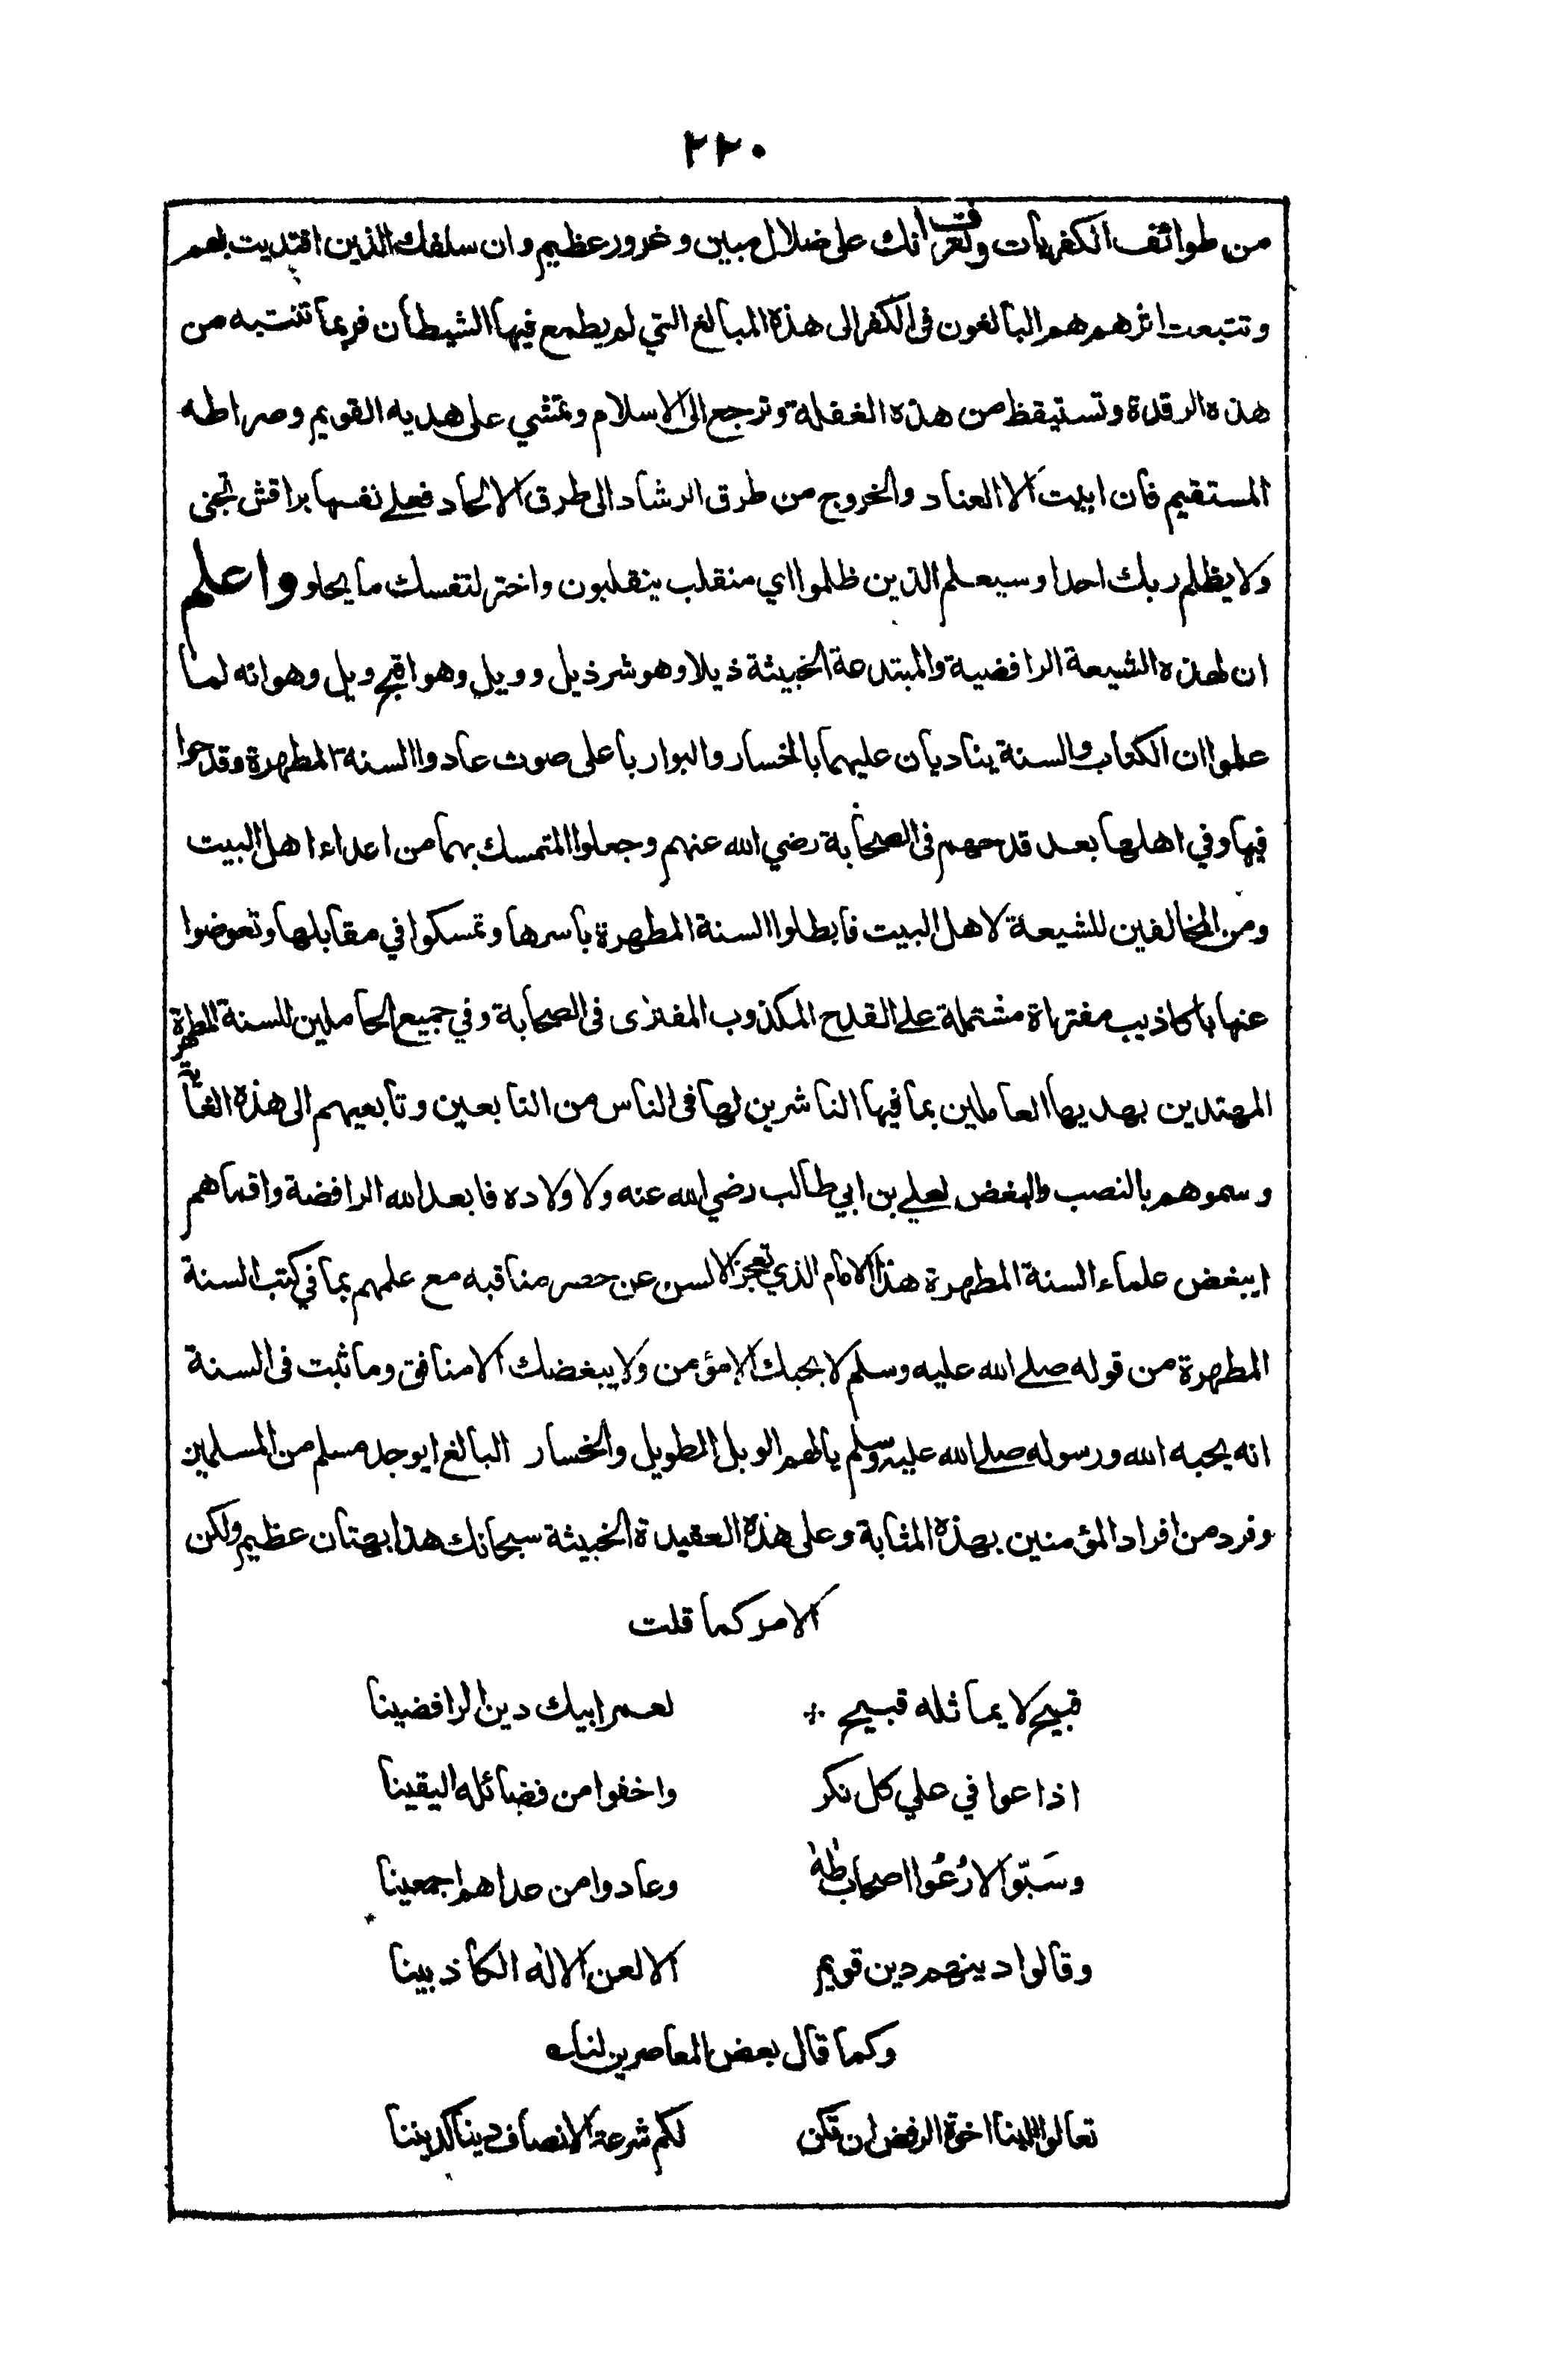 ٢٢٠
من طوائف الكفريات وتعرف انك على ضلال مبين وغرور عظيم وان سلفك الذين اقتديت بهم
وتتبعت اثرهم هم البالغون فى الكفر الى هذه المبالغ التي لم يطمع فيها الشيطان فربما تنتبه من
هذه الرقدة وتستيقظ من هذه الغفلة وترجع الى الاسلام وتمشي على هديه القويم وصراطه
المستقيم فان ابيت الا العناد والخروج من طرق الرشاد الى طرق الالحاد فعلے نفسها براقش تجنى
ولا يظلم ربك احدا وسيعلم الذين ظلموا اي منقلب ينقلبون واختر لنفسك ما يحلو واعلم
ان لهذه الشيعة الرافضية والمبتدعة الخبيثة ذيلا وهو شر ذيل وويل وهو اقبح ويل وهو انه لما
علموا ان الكتاب والسنة يناديان عليهما بالخسار والبوار باعلى صوت عادوا السنة المطهرة وقدحوا
فيها وفي اهلها بعد قدحهم فى الصحابة رضي الله عنهم وجعلوا المتمسك بهما من اعداء اهل البيت
ومن المخالفين للشيعة لاهل البيت فابطلوا السنة المطهرة باسرها وتمسكوا في مقابلها وتعوضوا
عنها باكاذيب مفتراة مشتملة علے القدح المكذوب المفترى فى الصحابة وفي جميع الحاملين للسنة المطهرة
المهتدين بهديها العاملين بما فيها الناشرين لها فى الناس من التابعين وتابعيهم الى هذه الغاية
وسموهم بالنصب والبغض لعلے بن ابي طالب رضي الله عنه ولاولاده فابعد الله الرافضة واقماهم
ايبغض علماء السنة المطهرة هذا الامام الذي تعجز الالسن عن حصر مناقبه مع علمهم بما في كتب السنة
المطهرة من قوله صلے الله عليه وسلم لا يحبك الا مؤمن ولا يبغضك الا منافق وما ثبت فى السنة
انه يحبه الله ورسوله صلے الله عليه وسلم يا لهم الويل الطويل والخسار البالغ ايوجد مسلم من المسلمين
وفرد من افراد المؤمنين بهذه المثابة وعلى هذه العقيدة الخبيثة سبحانك هذا بهتان عظيم ولكن
الامر كما قلت
قبيح لا يماثله قبيح ؞ لعمر ابيك دين الرافضينا
اذاعوا في علي كل نكر واخفوا من فضائله اليقينا
وسَبّوا لا رُعُوا اصحاب طٰهٰ وعادوا من عداهم اجمعينا
وقالوا دينهم دين قويم الا لعن الاله الكاذبينا
وكما قال بعض المعاصرين لنا
تعالوا الينا اخوة الرفض ان تكن لكم شرعة الانصاف دينا كديننا